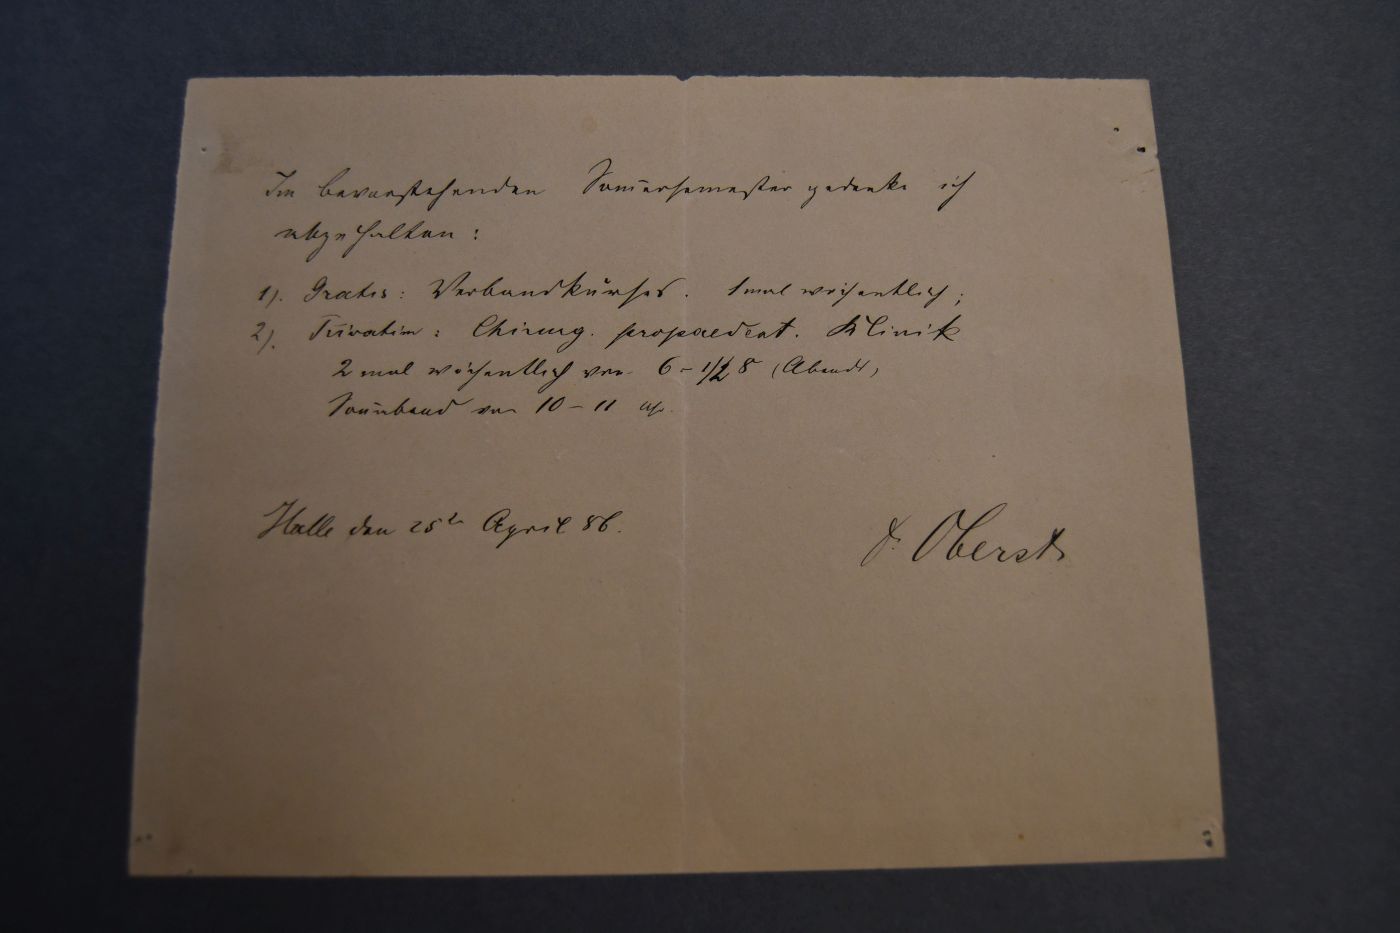 Im bevorstehenden Som̅ersemester gedenke ich
abzuhalten:
1). Gratis: Verbandkursus. 1mal wöchentlich;
2). Privatim: Chirurg. propaedeut. Klinik
2 mal wöchentlich von 6 - 1/2 8 (Abends)
Son̅abend von 10 - 11 Uhr.
Halle den 25ten April 86.
Dr. Oberst